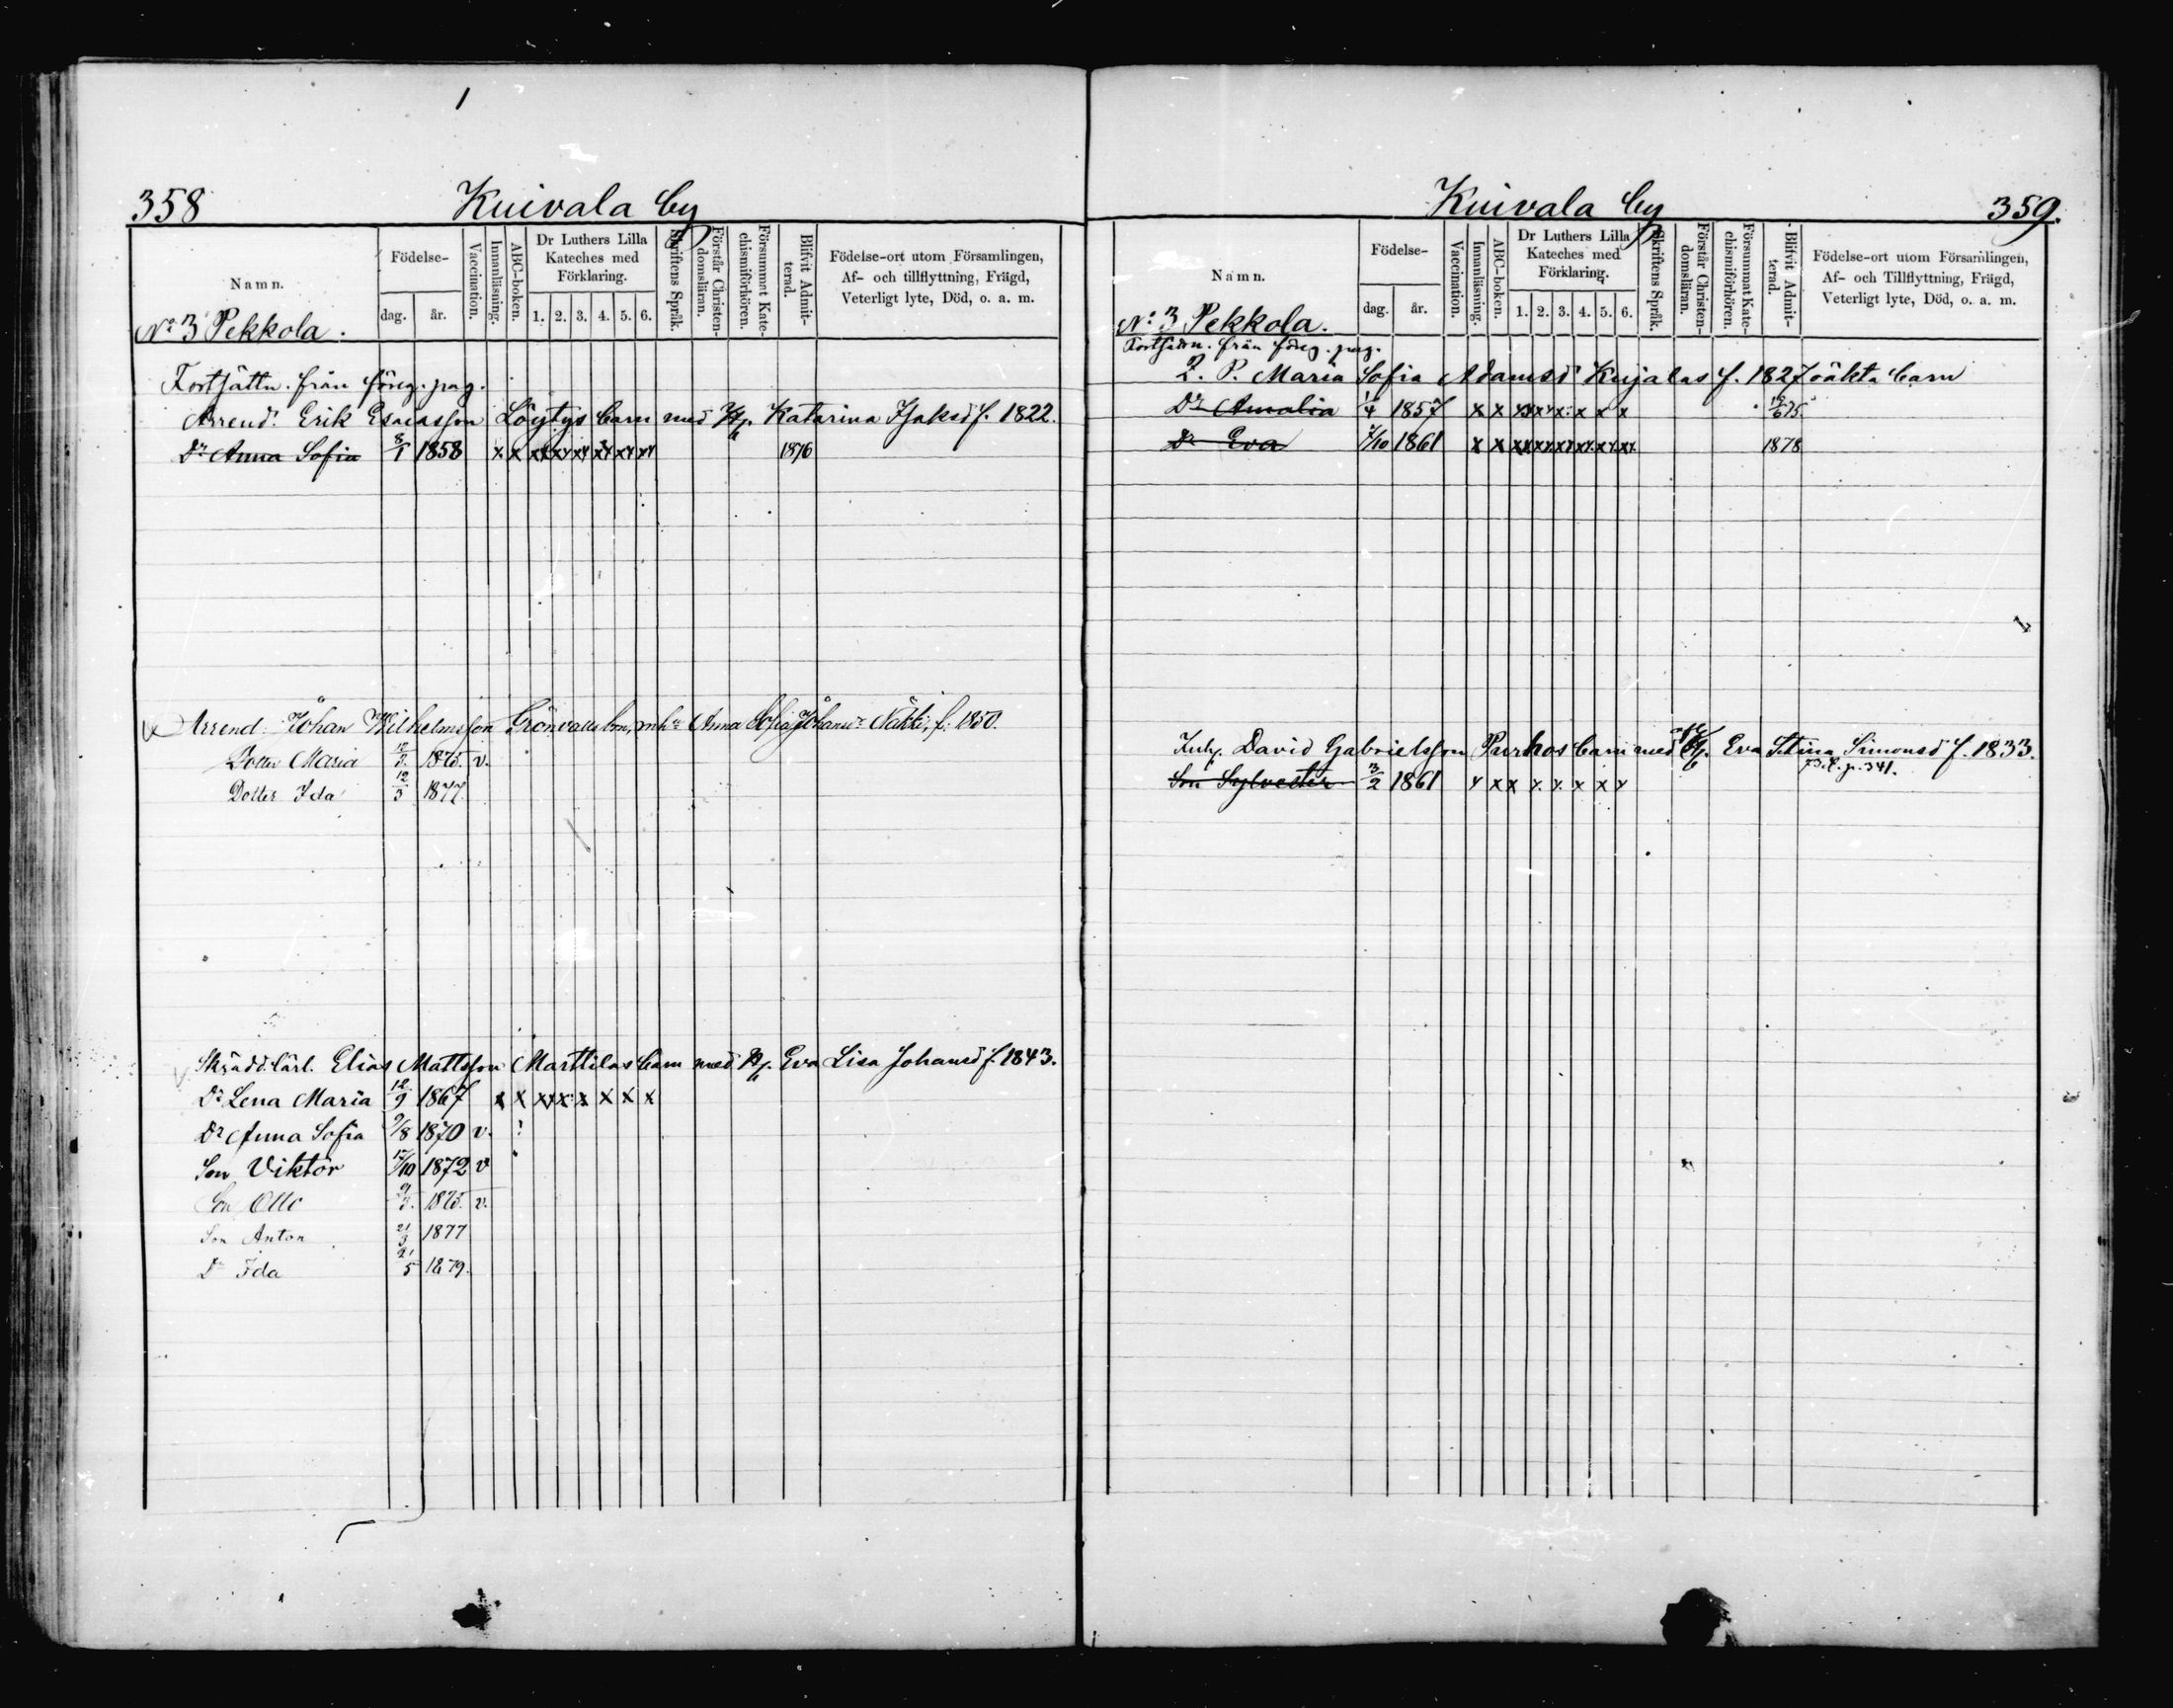 358 Kuivala by
Namn. Födelse- dag. år. Vaccination. Innanläsning. ABC-boken. Dr Luthers Lilla Kateches med Förklaring. 1. 2. 3. 4. 5. 6. Skriftens Språk. Förstår Christendomsläran. Försummat Katechismiförhören. Blifvit Admitterad. Födelse-ort utom Församlingen, Af- och tillflyttning, Frägd, Veterligt lyte, Död, o. a. m.
No 3 Pekkola.
Fortsättn. från föreg. pag.
Arrend. Erik Esaiasson Löytys barn med H. Katarina Isaksd f. 1822.
Dr Anna Sofia 8/1 1858 x x xx xx xx xx xx xx 1876
Arrend. Johan Wilhelmsson Grönvalls barn, m h. Anna Sofia Johansd. f. 1850.
Dotter Maria 1875. v.
Dotter Ida 12/3 1877.
Skrädd.lärl. Elias Mattsson Marttilas barn med H. Eva Lisa Johansd f. 1843.
Dr Lena Maria 12/9 1867 x x xx x x x x x
Dr Anna Sofia 9/8 1870 v.
Son Viktor 17/10 1872 v
Son Otto 1875. v.
Son Anton 21/3 1877
Dr Ida 21/5 1879.
Kuivala by 359.
Namn. Födelse- dag. år. Vaccination. Innanläsning. ABC-boken. Dr Luthers Lilla Kateches med Förklaring. 1. 2. 3. 4. 5. 6. Skriftens Språk. Förstår Christendomsläran. Försummat Katechismiförhören. Blifvit Admitterad. Födelse-ort utom Församlingen, Af- och Tillflyttning, Frägd, Veterligt lyte, Död, o. a. m.
No 3 Pekkola.
Fortsättn. från föreg. pag.
Maria Sofia Adamsd Kujalas f. 1827 oäkta barn
Dr Amalia 1/4 1857 x x xx xx x x x x 75
Dr Eva 7/10 1861 x x xx xx xx xx xx xx 1878
Inh. David Gabrielsson Purhos barn med H. Eva Stina Simonsd f. 1833.
p. 341.
Son Sylvester 13/2 1861 x x x x x x x x